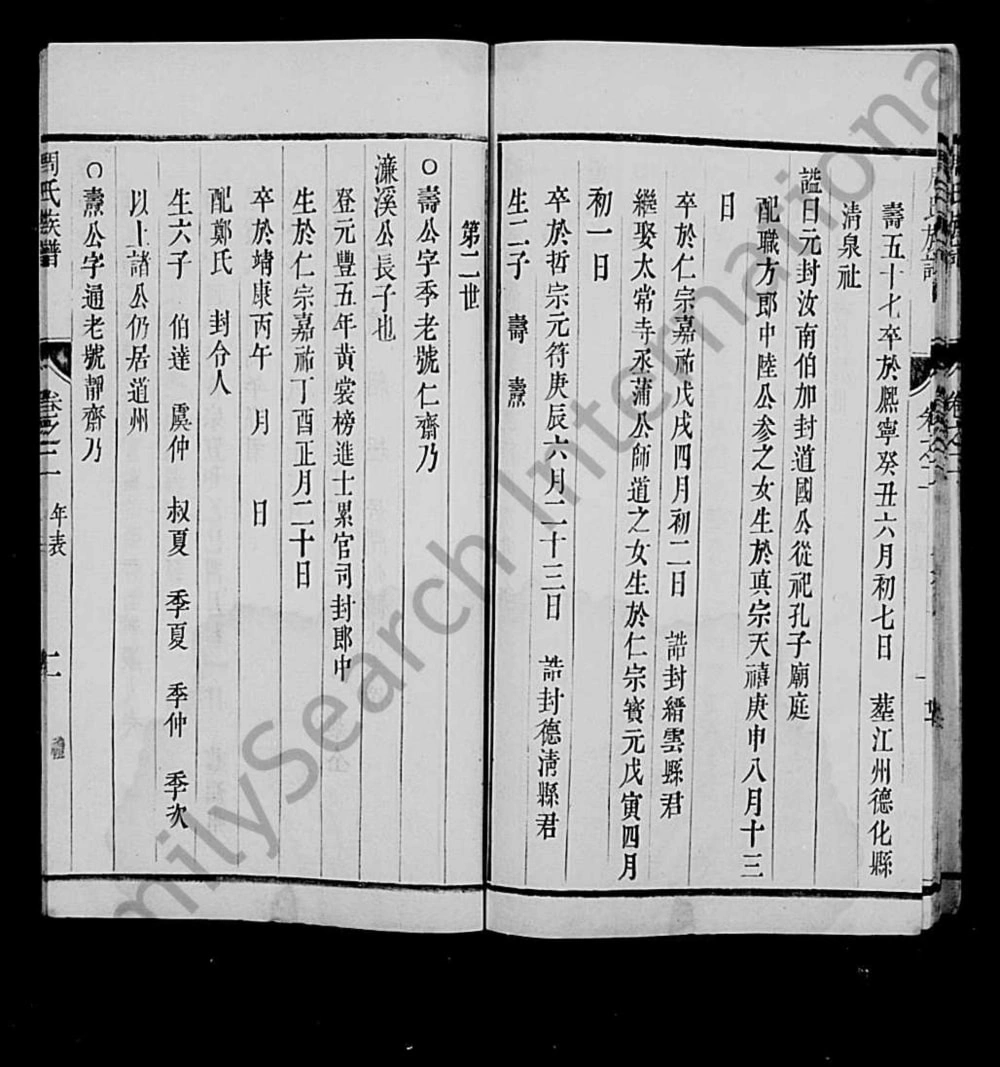 壽五十七卒於熙寧癸丑六月初七日 塟江州德化縣
清泉社
諡曰元封汝南伯加封道國公從祀孔子廟庭
配職方郎中陸公参之女生於真宗天禧庚申八月十三
日
卒於仁宗嘉祐戊戌四月初二日 誥封縉雲縣君
繼娶太常寺丞蒲公師道之女生於仁宗寶元戊寅四月
初一日
卒於哲宗元符庚辰六月二十三日 誥封德淸縣君
生二子 壽 燾
第二世
○壽公字季老號仁齋乃
濂溪公長子也
登元豐五年黄裳榜進士累官司封郎中
生於仁宗嘉祐丁酉正月二十日
卒於靖康丙午 月 日
配鄭氏 封令人
生六子 伯逹 虞仲 叔夏 季夏 季仲 季次
以上諸公仍居道州
○燾公字通老號靜齋乃
周氏族譜 卷之二 年表 二
FamilySearch International